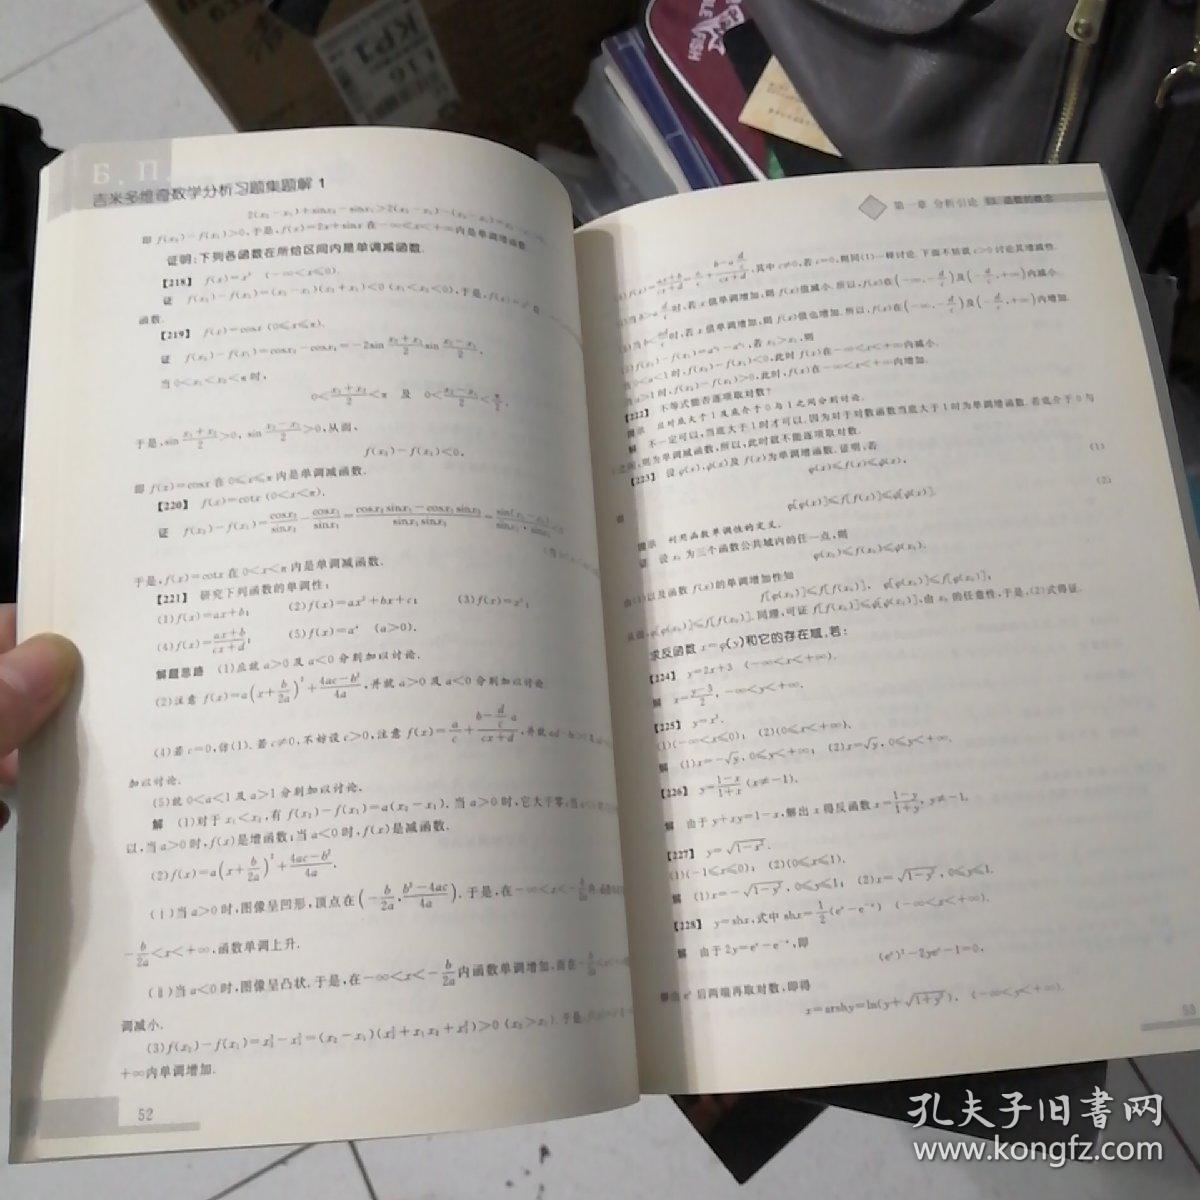 KP1
L16
FISH
Б. П.
吉米多维奇数学分析习题集题解 1
即 f(x₂)-f(x₁)>0,于是,f(x)=2x+sinx 在 -∞<x<+∞内是单调增函数.
证明:下列各函数在所给区间内是单调减函数.
【218】 f(x)=x² (-∞<x≤0).
证 f(x₂)-f(x₁)=(x₂-x₁)(x₂+x₁)<0 (x₁<x₂<0),于是,f(x)=x² 在
函数.
【219】 f(x)=cosx (0≤x≤π).
证 f(x₂)-f(x₁)=cosx₂-cosx₁=-2sin (x₂+x₁)/2 sin (x₂-x₁)/2,
当 0<x₁<x₂<π 时,
0<(x₂+x₁)/2<π 及 0<(x₂-x₁)/2<π/2,
于是,sin (x₂+x₁)/2>0, sin (x₂-x₁)/2>0,从而,
f(x₂)-f(x₁)<0,
即 f(x)=cosx 在 0≤x≤π 内是单调减函数.
【220】 f(x)=cotx (0<x<π).
证 f(x₂)-f(x₁)=cosx₂/sinx₂-cosx₁/sinx₁
于是,f(x)=cotx 在 0<x<π 内是单调减函数.
【221】 研究下列函数的单调性:
(1)f(x)=ax+b; (2)f(x)=ax²+bx+c; (3)f(x)=x³;
(4)f(x)=(ax+b)/(cx+d); (5)f(x)=aˣ (a>0).
解题思路 (1)应就 a>0 及 a<0 分别加以讨论.
(2)注意 f(x)=a(x+b/2a)²+(4ac-b²)/4a,并就 a>0 及 a<0 分别加以讨论.
(4)若 c=0,仿(1).若 c≠0,不妨设 c>0,注意 f(x)=a/c+(b-(d/c)a)/(cx+d),
加以讨论.
(5)就 0<a<1 及 a>1 分别加以讨论.
解 (1)对于 x₁<x₂,有 f(x₂)-f(x₁)=a(x₂-x₁).当 a>0 时,它大于零;
以,当 a>0 时,f(x)是增函数;当 a<0 时,f(x)是减函数.
(2)f(x)=a(x+b/2a)²+(4ac-b²)/4a.
(ⅰ)当 a>0 时,图像呈凹形,顶点在(-b/2a, (b²-4ac)/4a).于是,在 -∞<x<-b/2a
-b/2a<x<+∞,函数单调上升.
(ⅱ)当 a<0 时,图像呈凸状.于是,在 -∞<x<-b/2a 内函数单调增加,而在
调减小.
(3)f(x₂)-f(x₁)=x₂³-x₁³=(x₂-x₁)(x₂²+x₁x₂+x₁²)>0 (x₂>x₁).于是
+∞内单调增加.
52
第一章 分析引论 §3. 函数的概念
(4)f(x)=(ax+b)/(cx+d)=a/c+(b-a·d/c)/(cx+d),其中 c≠0,若 c=0,则同(1)一样讨论.下面不妨就 c>0 讨论其增减性.
时,若 x 值单调增加,则 f(x)值减小.所以,f(x)在(-∞,-d/c)及(-d/c,+∞)内减小.
时,若 x 值单调增加,则 f(x)值也增加.所以,f(x)在(-∞,-d/c)及(-d/c,+∞)内增加.
(5)f(x₂)-f(x₁)=a^x₂-a^x₁,若 x₂>x₁,则
当 0<a<1 时,f(x₂)-f(x₁)<0,此时 f(x)在 -∞<x<+∞内减小.
当 a>1 时,f(x₂)-f(x₁)>0,此时,f(x)在 -∞<x<+∞内增加.
【222】 不等式能否逐项取对数?
提示 应对底大于 1 及底介于 0 与 1 之间分别讨论.
解 不一定可以,当底大于 1 时才可以.因为对于对数函数当底大于 1 时为单调增函数.若底介于 0 与
1 之间,则为单调减函数,所以,此时就不能逐项取对数.
【223】 设 φ(x),ψ(x)及 f(x)为单调增函数.证明,若
φ(x)≤f(x)≤ψ(x), (1)
则
φ[φ(x)]≤f[f(x)]≤ψ[ψ(x)]. (2)
提示 利用函数单调性的定义.
证 设 x₀ 为三个函数公共域内的任一点,则
φ(x₀)≤f(x₀)≤ψ(x₀).
由(1)以及函数 f(x)的单调增加性知
f[φ(x₀)]≤f[f(x₀)], φ[φ(x₀)]≤f[φ(x₀)],
从而,φ[φ(x₀)]≤f[f(x₀)].同理,可证 f[f(x₀)]≤ψ[ψ(x₀)],由 x₀ 的任意性,于是,(2)式得证.
求反函数 x=φ(y)和它的存在域,若:
【224】 y=2x+3 (-∞<x<+∞).
解 x=(y-3)/2, -∞<y<+∞.
【225】 y=x².
(1)(-∞<x≤0); (2)(0≤x<+∞).
解 (1)x=-√y, 0≤y<+∞; (2)x=√y, 0≤y<+∞.
【226】 y=(1-x)/(1+x) (x≠-1).
解 由于 y+xy=1-x,解出 x 得反函数 x=(1-y)/(1+y), y≠-1.
【227】 y=√(1-x²).
(1)(-1≤x≤0); (2)(0≤x≤1).
解 (1)x=-√(1-y²), 0≤y≤1; (2)x=√(1-y²), 0≤y≤1.
【228】 y=shx,式中 shx=1/2(eˣ-e⁻ˣ) (-∞<x<+∞).
解 由于 2y=eˣ-e⁻ˣ,即
(eˣ)²-2yeˣ-1=0,
解出 eˣ 后两端再取对数,即得
x=arshy=ln(y+√(1+y²)), (-∞<y<+∞).
53
孔夫子旧书网
www.kongfz.com